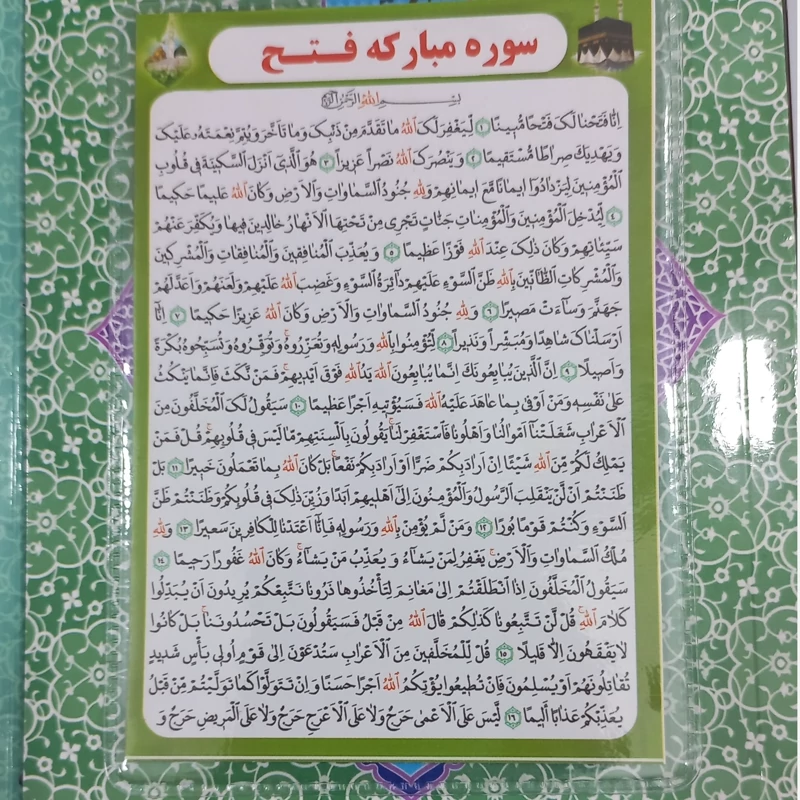 سوره مبارکه فتح
بِسْمِ اللهِ الرَّحْمٰنِ الرَّحِیمِ
اِنّا فَتَحْنا لَکَ فَتْحًا مُبینًا ۱ لِیَغْفِرَ لَکَ اللهُ ما تَقَدَّمَ مِنْ ذَنْبِکَ وَما تَاَخَّرَ وَیُتِمَّ نِعْمَتَهُ عَلَیْکَ
وَیَهْدِیَکَ صِراطًا مُسْتَقیمًا ۲ وَیَنْصُرَکَ اللهُ نَصْرًا عَزیزًا ۳ هُوَ الَّذی اَنْزَلَ السَّکینَةَ فی قُلُوبِ
الْمُؤْمِنینَ لِیَزْدادُوا ایمانًا مَعَ ایمانِهِمْ وَلِلّهِ جُنُودُ السَّماواتِ وَالْاَرْضِ وَکانَ اللهُ عَلیمًا حَکیمًا
۴ لِیُدْخِلَ الْمُؤْمِنینَ وَالْمُؤْمِناتِ جَنّاتٍ تَجْری مِنْ تَحْتِهَا الْاَنْهارُ خالِدینَ فیها وَیُکَفِّرَ عَنْهُمْ
سَیِّئاتِهِمْ وَکانَ ذلِکَ عِنْدَ اللهِ فَوْزًا عَظیمًا ۵ وَیُعَذِّبَ الْمُنافِقینَ وَالْمُنافِقاتِ وَالْمُشْرِکینَ
وَالْمُشْرِکاتِ الظّانّینَ بِاللهِ ظَنَّ السَّوْءِ عَلَیْهِمْ دائِرَةُ السَّوْءِ وَغَضِبَ اللهُ عَلَیْهِمْ وَلَعَنَهُمْ وَاَعَدَّ لَهُمْ
جَهَنَّمَ وَساءَتْ مَصیرًا ۶ وَلِلّهِ جُنُودُ السَّماواتِ وَالْاَرْضِ وَکانَ اللهُ عَزیزًا حَکیمًا ۷ اِنّا
اَرْسَلْناکَ شاهِدًا وَمُبَشِّرًا وَنَذیرًا ۸ لِتُؤْمِنُوا بِاللهِ وَرَسُولِهِ وَتُعَزِّرُوهُ وَتُوَقِّرُوهُ وَتُسَبِّحُوهُ بُکْرَةً
وَاَصیلًا ۹ اِنَّ الَّذینَ یُبایِعُونَکَ اِنَّما یُبایِعُونَ اللهَ یَدُ اللهِ فَوْقَ اَیْدیهِمْ فَمَنْ نَکَثَ فَاِنَّما یَنْکُثُ
عَلی نَفْسِهِ وَمَنْ اَوْفی بِما عاهَدَ عَلَیْهُ اللهَ فَسَیُؤْتیهِ اَجْرًا عَظیمًا ۱۰ سَیَقُولُ لَکَ الْمُخَلَّفُونَ مِنَ
الْاَعْرابِ شَغَلَتْنا اَمْوالُنا وَاَهْلُونا فَاسْتَغْفِرْ لَنا یَقُولُونَ بِاَلْسِنَتِهِمْ ما لَیْسَ فی قُلُوبِهِمْ قُلْ فَمَنْ
یَمْلِکُ لَکُمْ مِنَ اللهِ شَیْئًا اِنْ اَرادَ بِکُمْ ضَرًّا اَوْ اَرادَ بِکُمْ نَفْعًا بَلْ کانَ اللهُ بِما تَعْمَلُونَ خَبیرًا ۱۱ بَلْ
ظَنَنْتُمْ اَنْ لَنْ یَنْقَلِبَ الرَّسُولُ وَالْمُؤْمِنُونَ اِلی اَهْلیهِمْ اَبَدًا وَزُیِّنَ ذلِکَ فی قُلُوبِکُمْ وَظَنَنْتُمْ ظَنَّ
السَّوْءِ وَکُنْتُمْ قَوْمًا بُورًا ۱۲ وَمَنْ لَمْ یُؤْمِنْ بِاللهِ وَرَسُولِهِ فَاِنّا اَعْتَدْنا لِلْکافِرینَ سَعیرًا ۱۳ وَلِلّهِ
مُلْکُ السَّماواتِ وَالْاَرْضِ یَغْفِرُ لِمَنْ یَشاءُ وَیُعَذِّبُ مَنْ یَشاءُ وَکانَ اللهُ غَفُورًا رَحیمًا ۱۴
سَیَقُولُ الْمُخَلَّفُونَ اِذَا انْطَلَقْتُمْ اِلی مَغانِمَ لِتَأْخُذُوها ذَرُونا نَتَّبِعْکُمْ یُریدُونَ اَنْ یُبَدِّلُوا
کَلامَ اللهِ قُلْ لَنْ تَتَّبِعُونا کَذلِکُمْ قالَ اللهُ مِنْ قَبْلُ فَسَیَقُولُونَ بَلْ تَحْسُدُونَنا بَلْ کانُوا
لا یَفْقَهُونَ اِلّا قَلیلًا ۱۵ قُلْ لِلْمُخَلَّفینَ مِنَ الْاَعْرابِ سَتُدْعَوْنَ اِلی قَوْمٍ اُولی بَأْسٍ شَدیدٍ
تُقاتِلُونَهُمْ اَوْ یُسْلِمُونَ فَاِنْ تُطیعُوا یُؤْتِکُمُ اللهُ اَجْرًا حَسَنًا وَاِنْ تَتَوَلَّوْا کَما تَوَلَّیْتُمْ مِنْ قَبْلُ
یُعَذِّبْکُمْ عَذابًا اَلیمًا ۱۶ لَیْسَ عَلَی الْاَعْمی حَرَجٌ وَلا عَلَی الْاَعْرَجِ حَرَجٌ وَلا عَلَی الْمَریضِ حَرَجٌ وَ